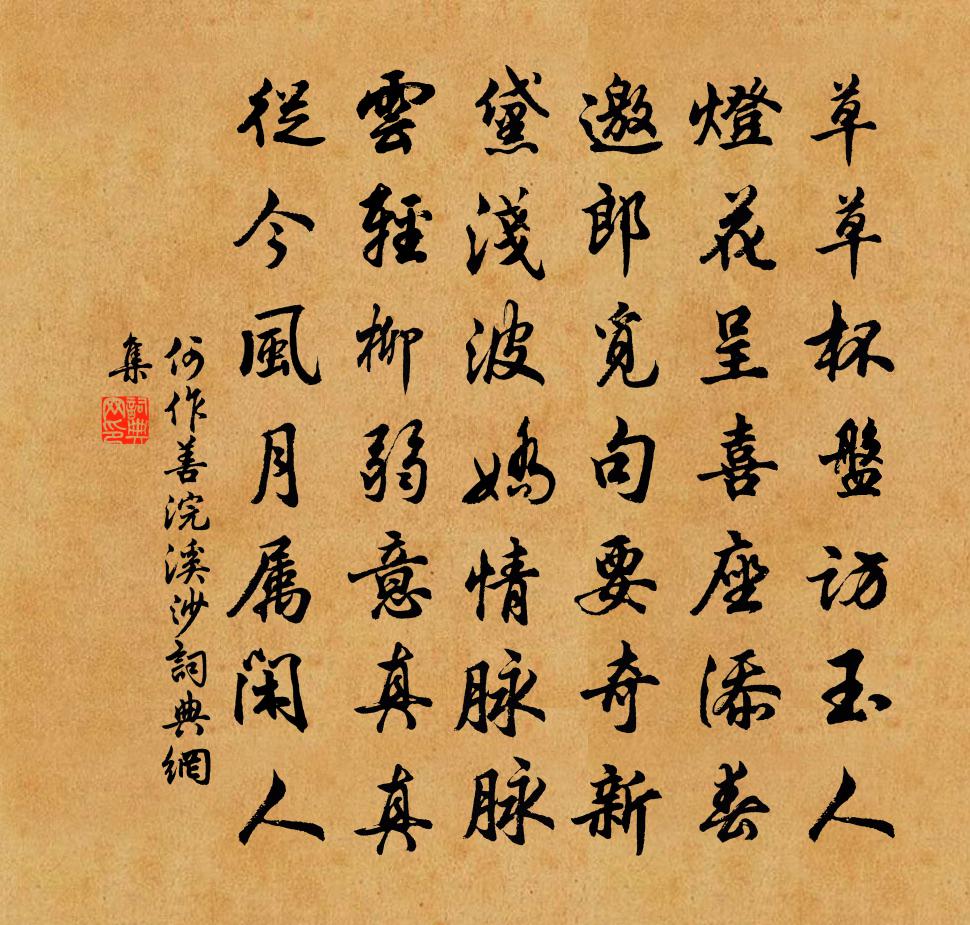 草草杯盤訪玉人
燈花呈喜座添春
邀郎覓句要奇新
黛淺波嬌情脉脉
雲輕柳弱意真真
從今風月属閑人
何作善浣溪沙詞典網
集
詞典網印